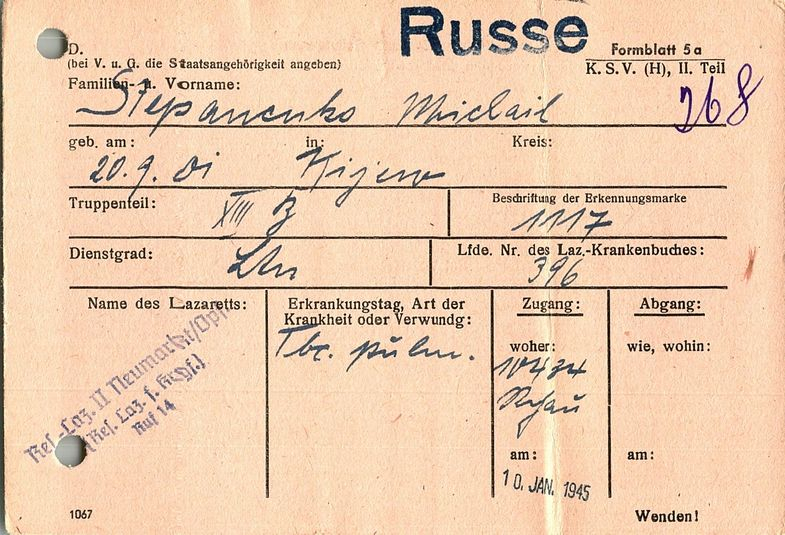 Russe
D.
Formblatt 5a
(bei V. u. G. die Staatsangehörigkeit angeben)
K. S. V. (H), II. Teil
Familien- u. Vorname:
268
Stepanenko Michail
geb. am: in: Kreis:
20.9.01 Kijew
Truppenteil: Beschriftung der Erkennungsmarke
XIII B 1117
Dienstgrad: Lfde. Nr. des Laz.-Krankenbuches:
Ltn 396
Name des Lazaretts: Erkrankungstag, Art der Krankheit oder Verwundg: Zugang: Abgang:
Tbc. pulm.
woher: wie, wohin:
10434
Res.-Laz. II Neumarkt/Opf.
(Res. Laz. f. Krgf.)
Ruf 14
am: am:
10. JAN. 1945
1067
Wenden!